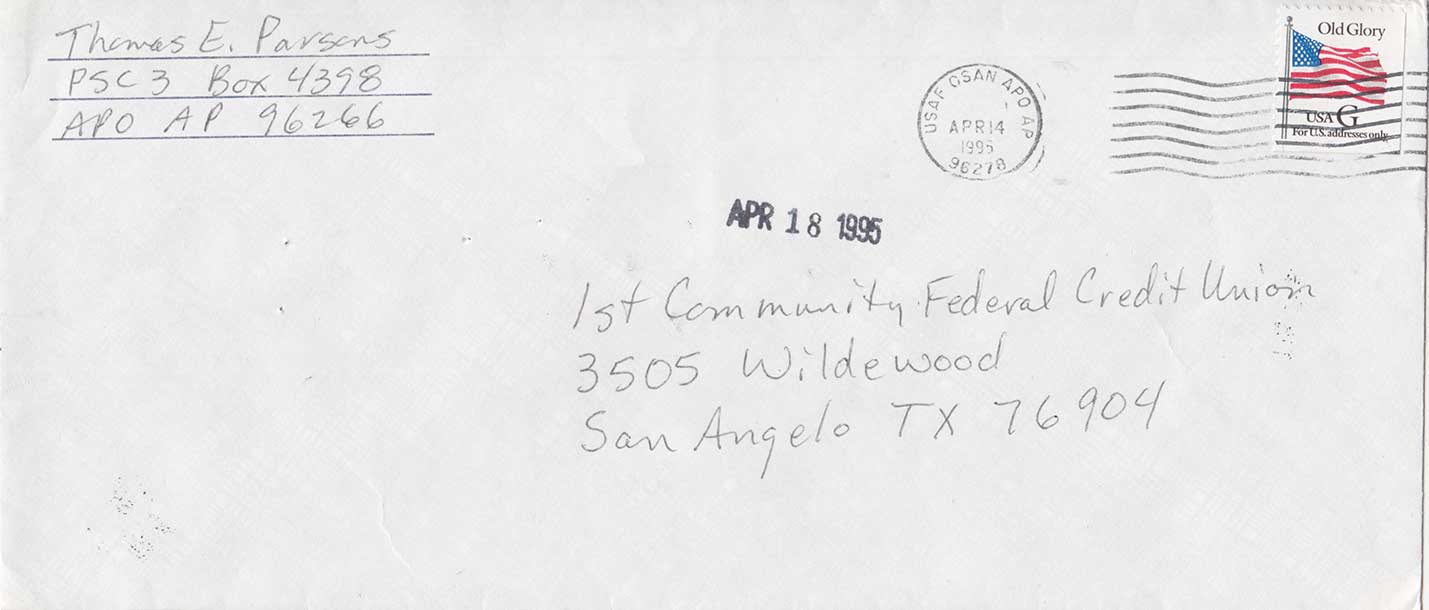 Thomas E. Parsons
PSC 3 Box 4398
APO AP 96266
USAF OSAN APO AP
APR 14
1995
96278
Old Glory
USA G
For U.S. addresses only
APR 18 1995
1st Community Federal Credit Union
3505 Wildewood
San Angelo TX 76904